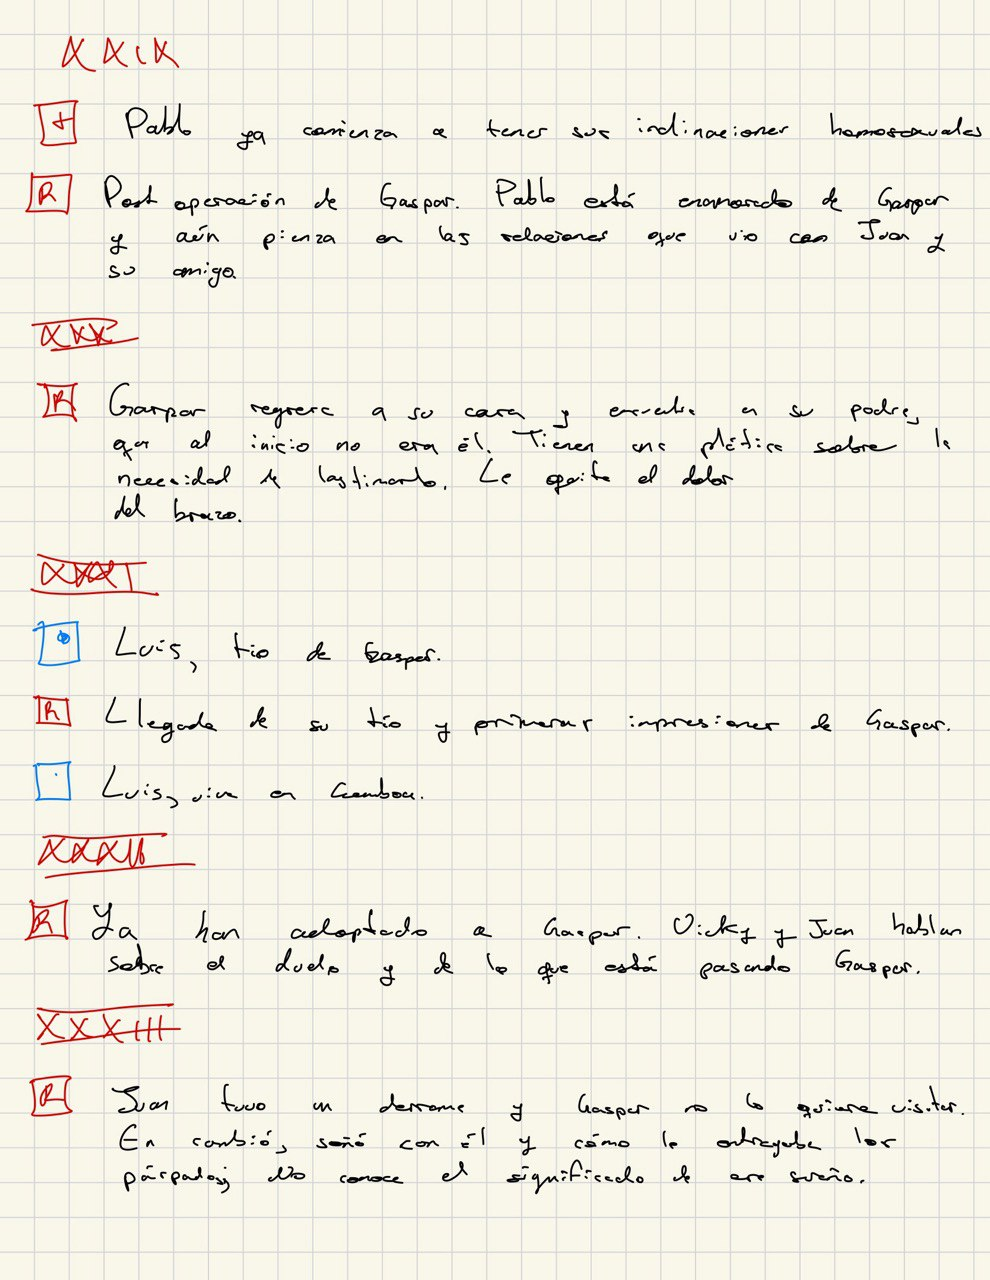 XXIX
+ Pablo ya comienza a tener sus inclinaciones homosexuales
R Post operación de Gaspar. Pablo está enamorado de Gaspar
y aún pienza en las relaciones que vio con Juan y
su amigo.
XXX
R Gaspar regresa a su casa y encuentra a su padre,
que al inicio no era él. Tienen una plática sobre la
necesidad de lastimarlo. Le quita el dolor
del brazo.
XXXI
Luis, tio de Gaspar.
R Llegada de su tío y primeras impresiones de Gaspar.
Luis, vive en
XXXII
R Ya han adoptado a Gaspar. Vicky y Juan hablan
sobre el duelo y de lo que está pasando Gaspar.
XXXIII
R Juan tuvo un derrame y Gaspar no lo quiere visitar.
En cambió, soñó con él y cómo le entregaba los
párpados; No conoce el significado de ese sueño.